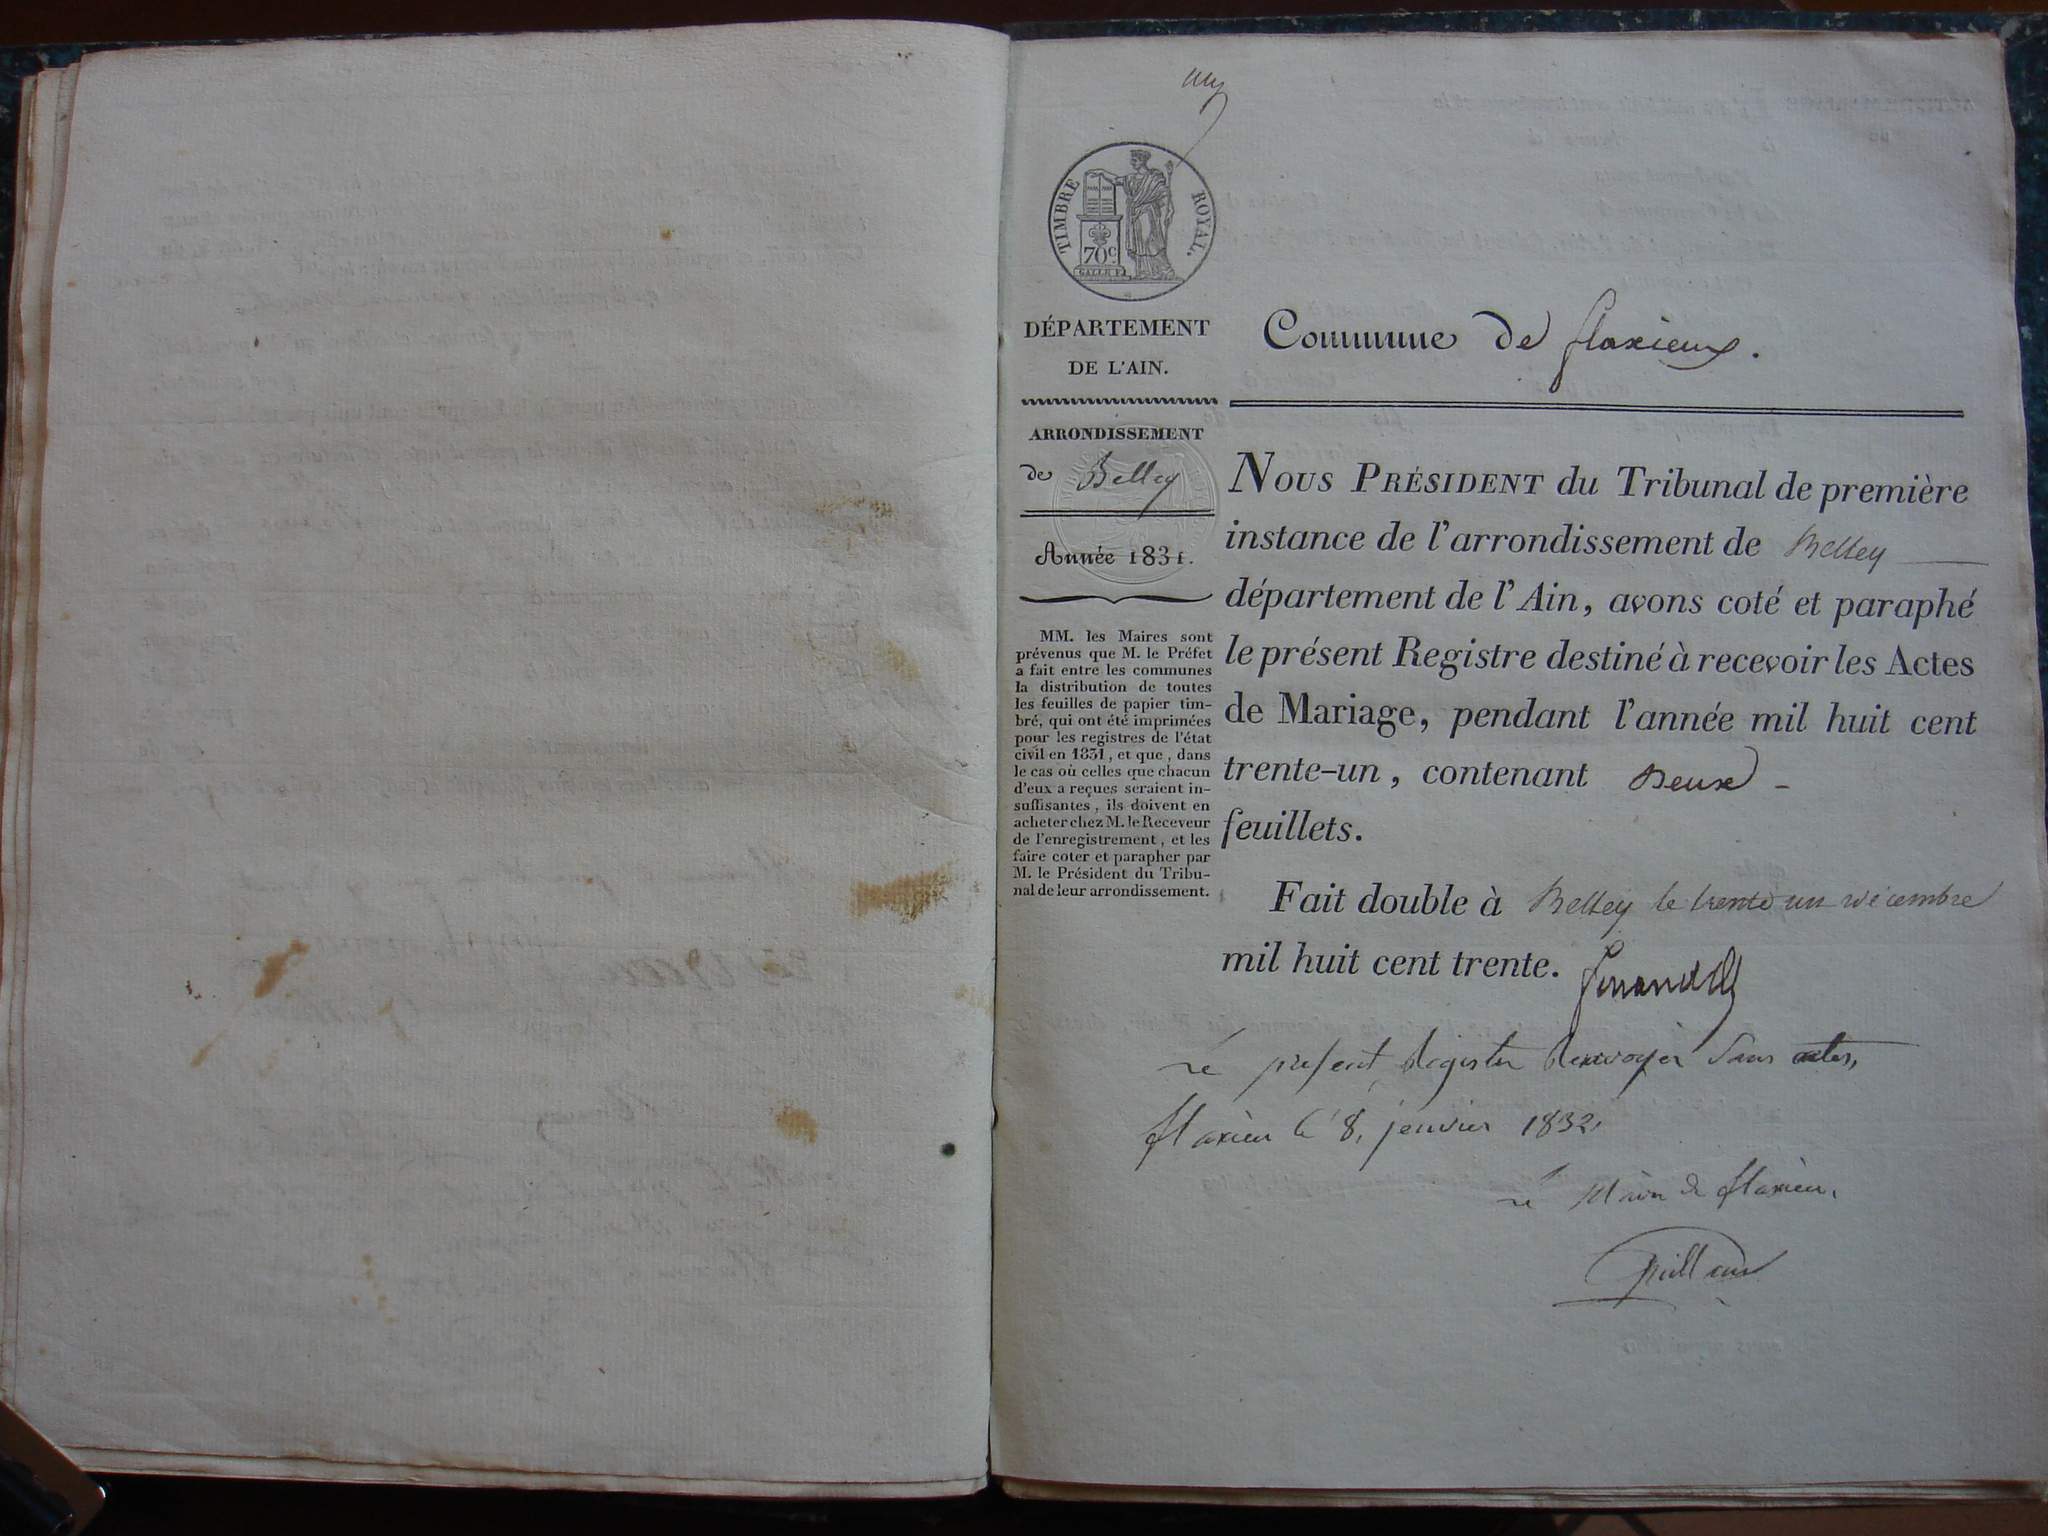 TIMBRE ROYAL.
70c
DÉPARTEMENT
DE L'AIN.
ARRONDISSEMENT
de Belley
Année 1831.
MM. les Maires sont
prévenus que M. le Préfet
a fait entre les communes
la distribution de toutes
les feuilles de papier tim-
bré, qui ont été imprimées
pour les registres de l'état
civil en 1831, et que, dans
le cas où celles que chacun
d'eux a reçues seraient in-
suffisantes, ils doivent en
acheter chez M. le Receveur
de l'enregistrement, et les
faire coter et parapher par
M. le Président du Tribu-
nal de leur arrondissement.
Commune de flaxieux.
NOUS PRÉSIDENT du Tribunal de première
instance de l'arrondissement de Belley
département de l'Ain, avons coté et paraphé
le présent Registre destiné à recevoir les Actes
de Mariage, pendant l'année mil huit cent
trente-un, contenant Deux -
feuillets.
Fait double à Belley le trente un décembre
mil huit cent trente.
Le present Registre Renvoyer Sans actes,
flaxieu le 8, janvier 1832,
le Maire de flaxieu,